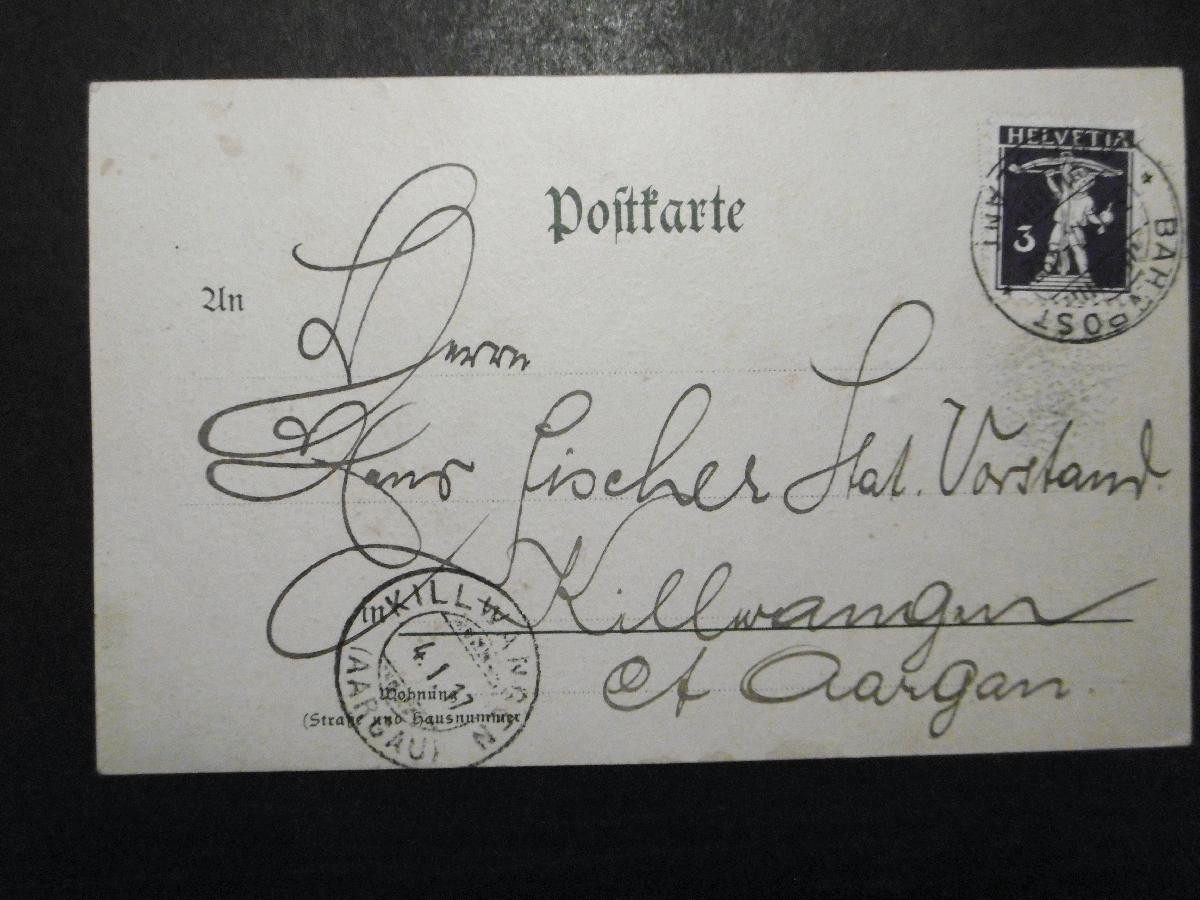 Postkarte
HELVETIA
3
BAHNPOST
AMT
An
Herrn
Hans Fischer Stat. Vorstand.
in Killwangen
KILLWANGEN
4.1.11
(AARGAU)
Ct Aargau.
Wohnung
(Straße und Hausnummer)